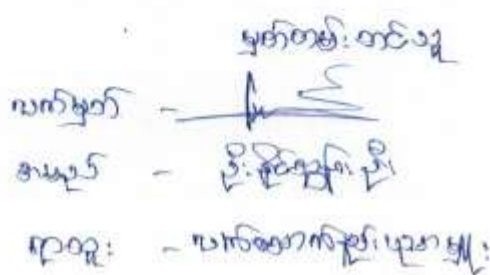 မှတ်တမ်းတင်သူ
လက်မှတ် -
အမည် - ဦး
ရာထူး - လက်ထောက်ညွှန်ကြားရေးမှူး